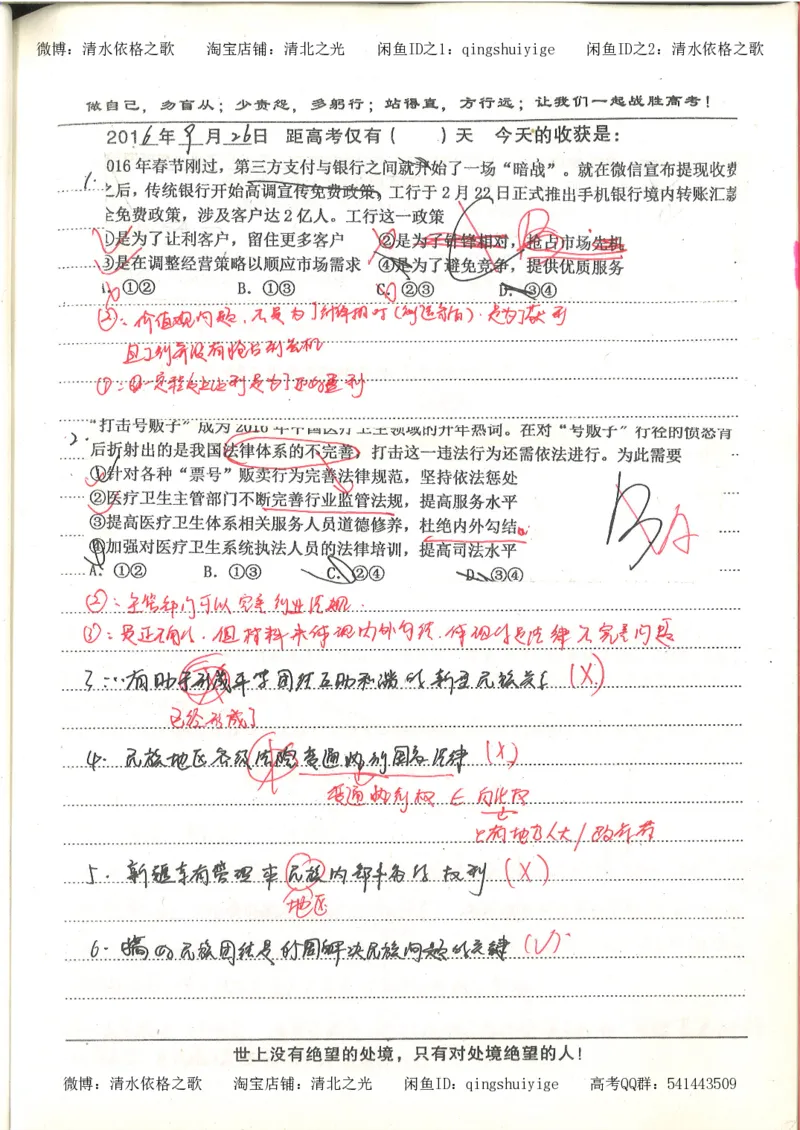 微博：清水依格之歌 淘宝店铺：清北之光 闲鱼ID之1：qingshuiyige 闲鱼ID之2：清水依格之歌
做自己，勿盲从；少责怨，多躬行；站得直，方行远；让我们一起战胜高考！
2016年9月26日 距高考仅有（ ）天 今天的收获是：
1. 016年春节刚过，第三方支付与银行之间就开始了一场“暗战”。就在微信宣布提现收费
之后，传统银行开始高调宣传免费政策，工行于2月22日正式推出手机银行境内转账汇款
全免费政策，涉及客户达2亿人。工行这一政策
①是为了让利客户，留住更多客户 ②是为了针锋相对，抢占市场先机 B
③是在调整经营策略以顺应市场需求 ④是为了避免竞争，提供优质服务
A. ①② B. ①③ C. ②③ D. ③④
②：价值观问题，不是为了针锋相对（制造矛盾）．是为了获利
且工行并没有抢占到先机
①：因一定程度上让利是为了更好盈利
2. “打击号贩子”成为2016年中国医疗卫生领域的开年热词。在对“号贩子”行径的愤怒背
后折射出的是我国法律体系的不完善，打击这一违法行为还需依法进行。为此需要
①针对各种“票号”贩卖行为完善法律规范，坚持依法惩处
②医疗卫生主管部门不断完善行业监管法规，提高服务水平
③提高医疗卫生体系相关服务人员道德修养，杜绝内外勾结
④加强对医疗卫生系统执法人员的法律培训，提高司法水平
A. ①② B. ①③ C. ②④ D. ③④
B A
②：主管部门可以完善行业法规．
③：是正确的．但材料未体现内外勾结．体现的是法律不完善问题
3. …有助于形成平等团结互助和谐的新型民族关系 (X)
已经形成了
4. 民族地区各级法院变通执行国家法律 (X)
变通执行权 ∈ 自治权
只有地方人大/政府有
5. 新疆享有管理本民族内部事务的权利 (X)
地区
6. 民族团结是我国解决民族问题的关键 (√)
世上没有绝望的处境，只有对处境绝望的人！
微博：清水依格之歌 淘宝店铺：清北之光 闲鱼ID：qingshuiyige 高考QQ群：541443509